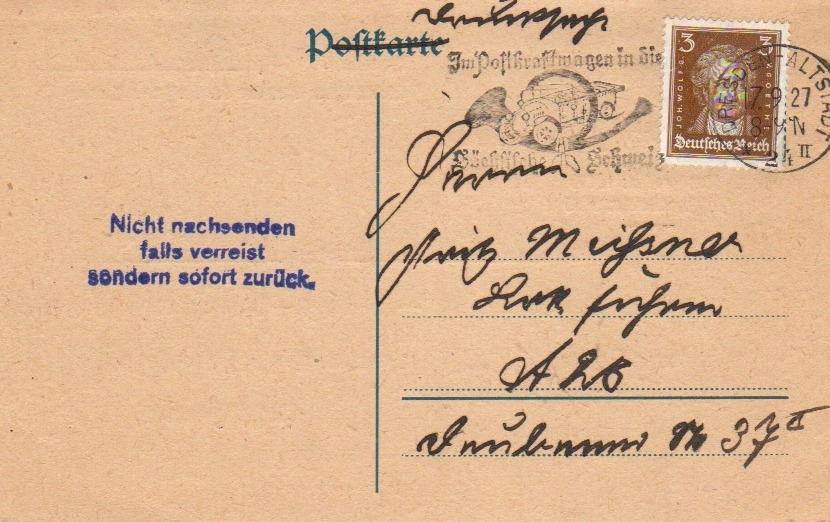 Drucksache
Postkarte
Im Postkraftwagen in die
Sächsische Schweiz
3 3
JOH. WOLFG. GOETHE
Deutsches Reich
DRESDEN-ALTSTADT
17.9.27
8-9 N
24 II
Nicht nachsenden
falls verreist
sondern sofort zurück.
Herrn
Fritz Meißner
A 26
Nr 37 II